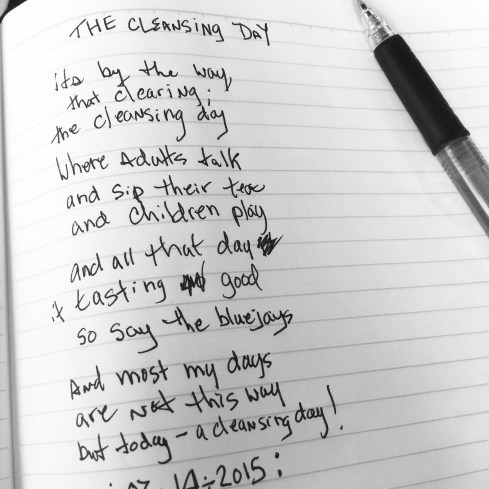 THE CLEANSING DAY
its by the way,
that clearing;
the cleansing day
Where Adults talk
and sip their tea
and children play
and all that day
it tasting good
so say the bluejays
And most my days
are not this way
but today - a cleansing day!
14-2015: